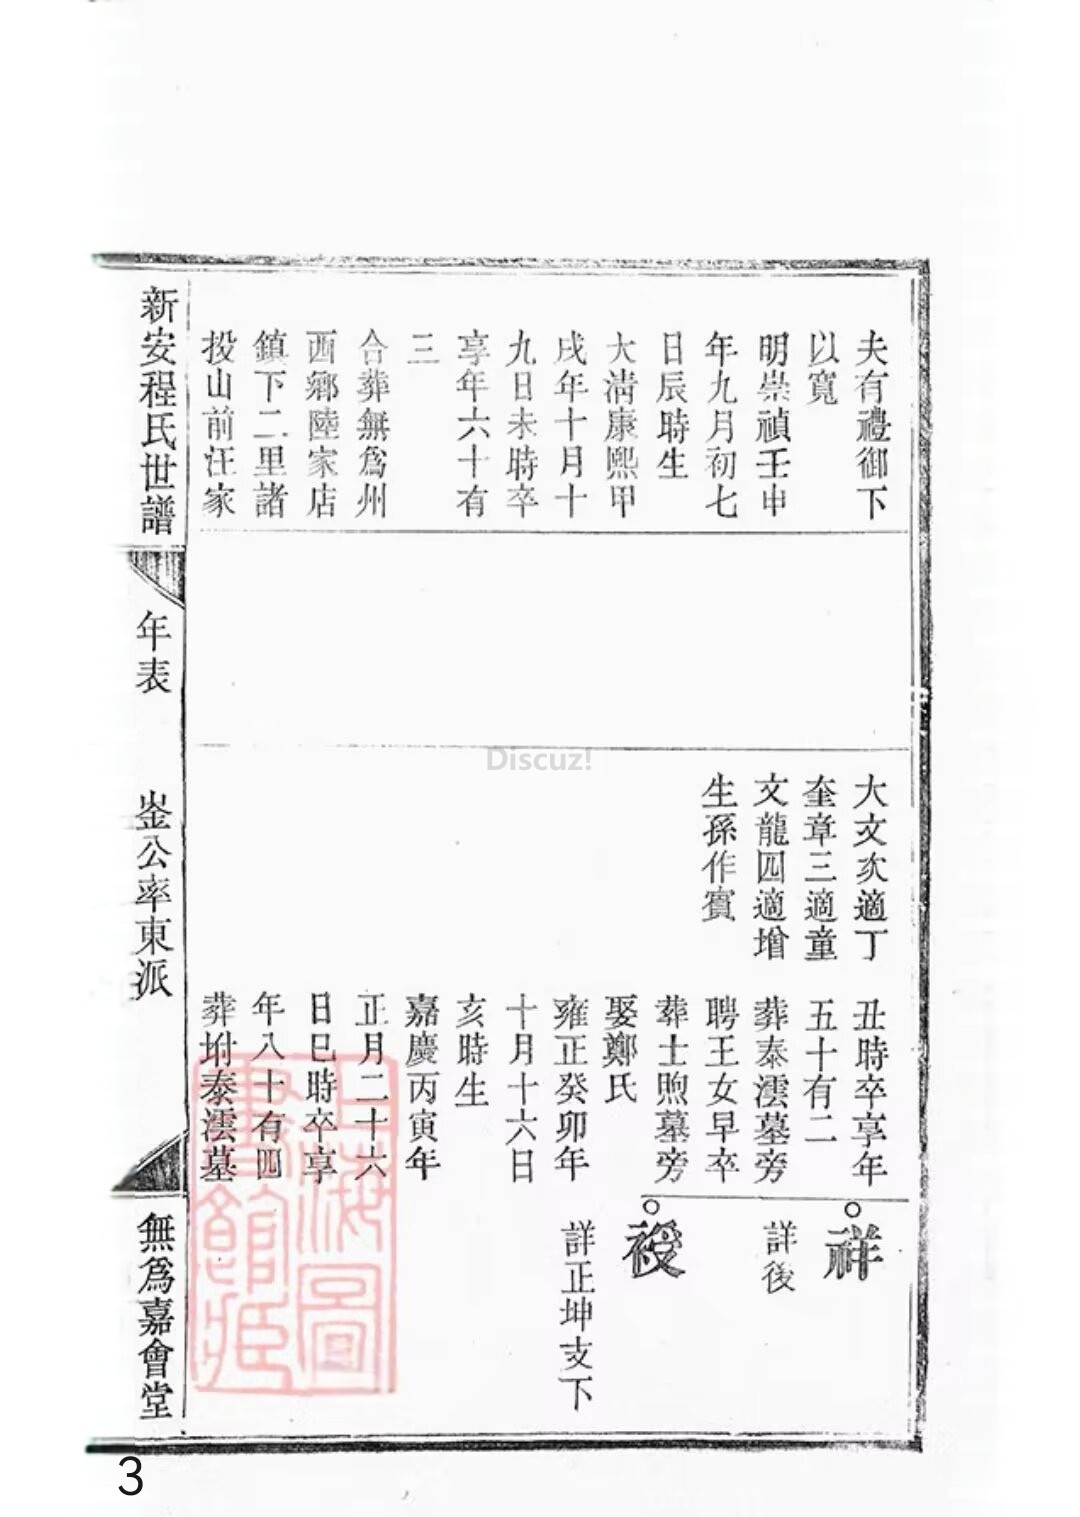 夫有禮御下
以寬
明崇禎壬申
年九月初七
日辰時生
大淸康熙甲
戌年十月十
九日未時卒
享年六十有
三
合葬無爲州
西鄉陸家店
鎮下二里諸
投山前汪家
大文次適丁
奎章三適童
文龍四適增
生孫作賓
丑時卒享年
五十有二
葬泰澐墓旁
聘王女早卒
葬士煦墓旁
娶鄭氏
雍正癸卯年
十月十六日
亥時生
嘉慶丙寅年
正月二十六
日巳時卒享
年八十有四
葬坿泰澐墓
祥
詳後
祾
詳正坤支下
新安程氏世譜
年表
崟公率東派
無爲嘉會堂
上海圖
書館藏
Discuz!
3